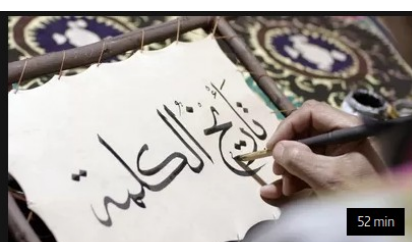 تَأرِيخُ ألكلمة
52 min